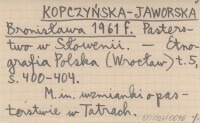 KOPCZYŃSKA-JAWORSKA
Bronisława 1961 F. Paster-
stwo w Słowenii. — Etno-
grafia Polska (Wrocław) t.5,
s. 400-404.
M.in. wzmianki o pas-
terstwie w Tatrach.